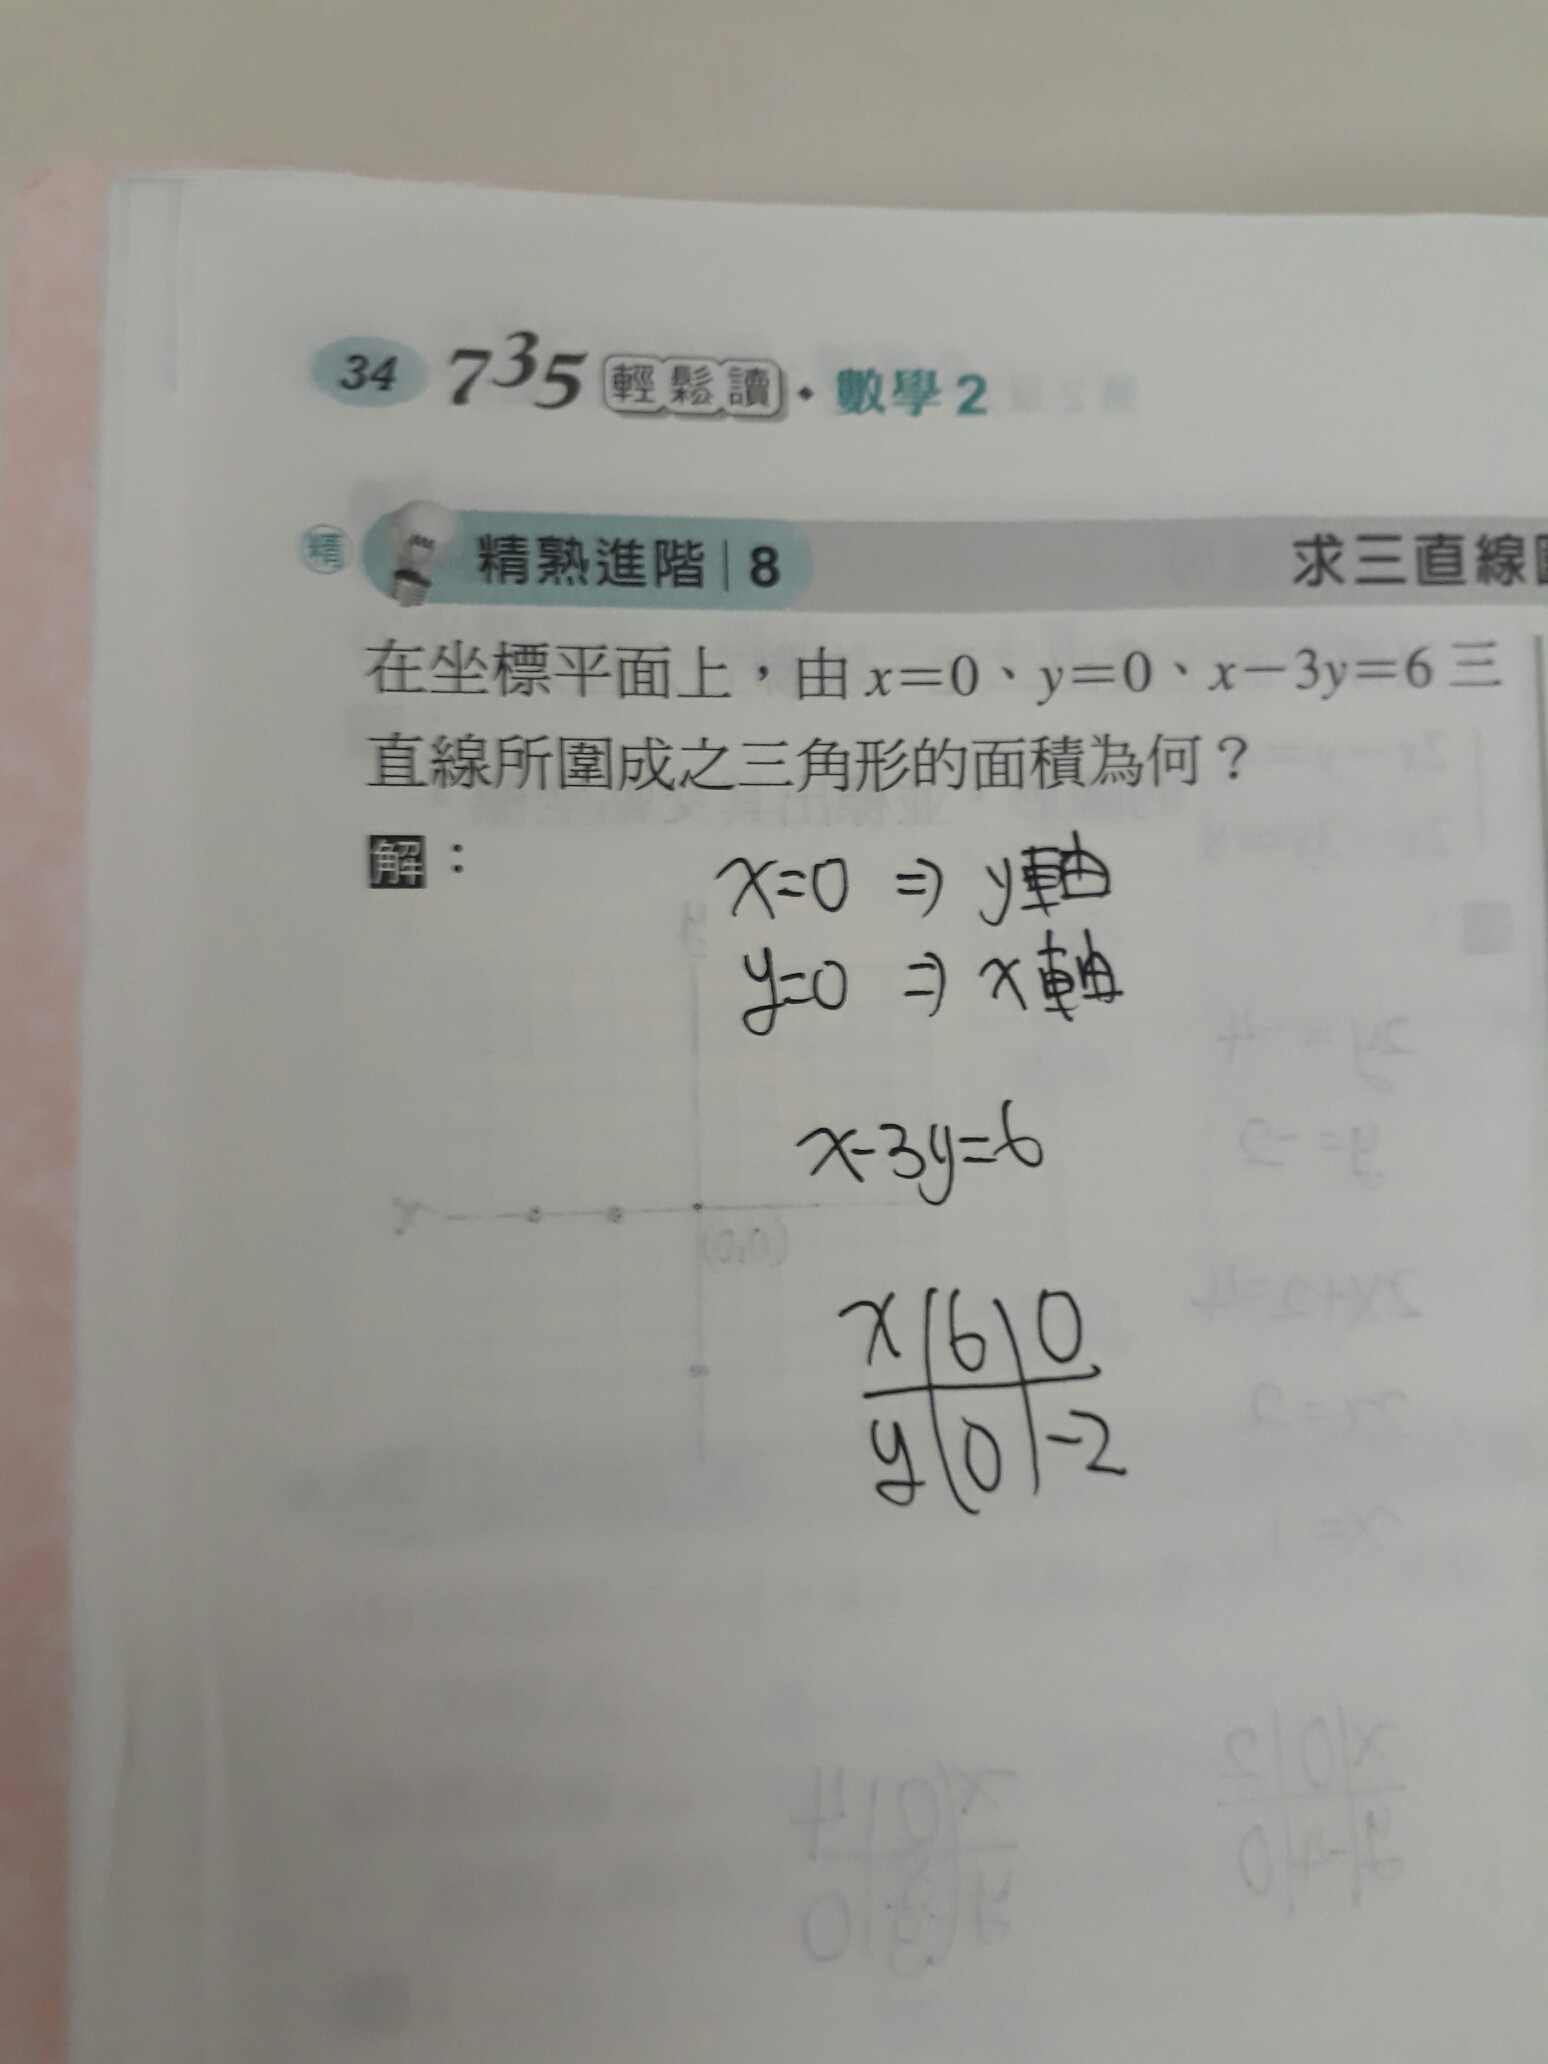 34 735 輕鬆讀・數學2
精 精熟進階|8 求三直線
在坐標平面上，由 x=0、y=0、x−3y=6 三
直線所圍成之三角形的面積為何？
解：
x=0 ⇒ y軸
y=0 ⇒ x軸
x-3y=6
x|6|0
y|0|-2